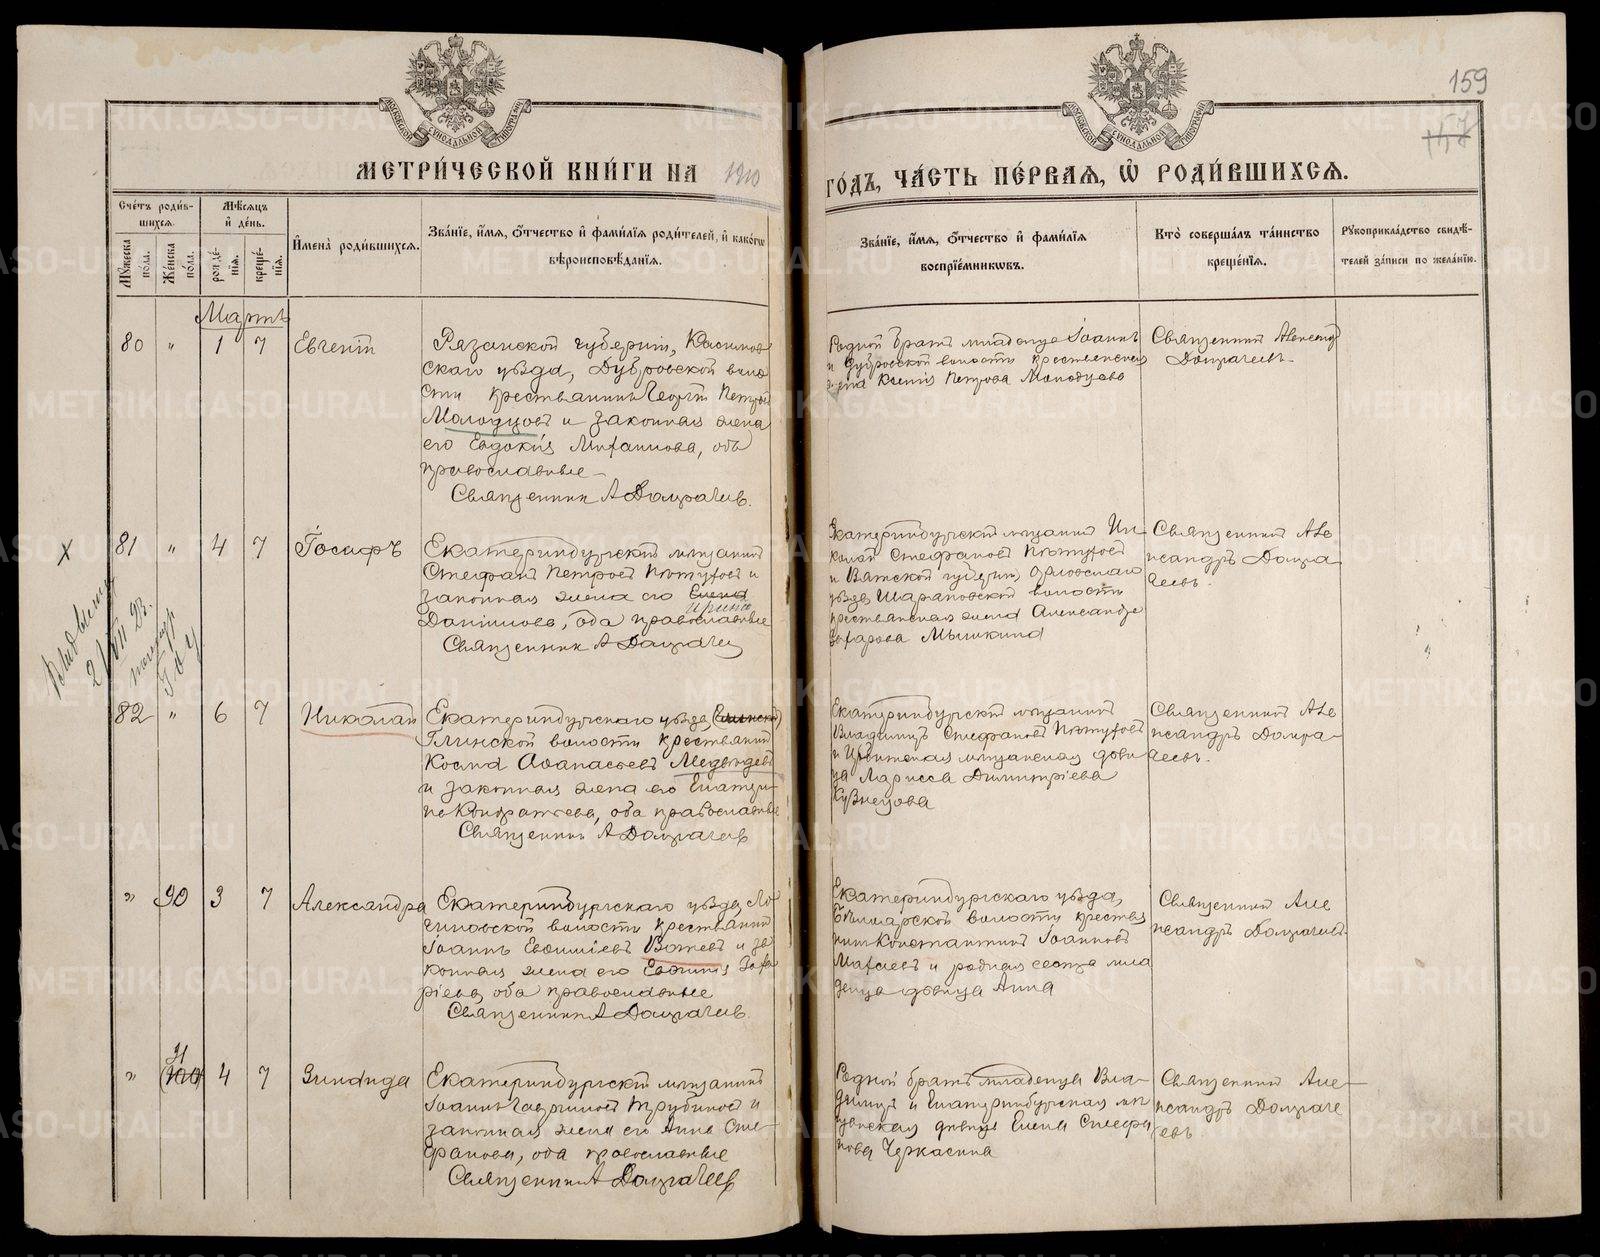 159
МЕТРИ́ЧЕСКОЙ КНИ́ГИ НА 1910
ГО́ДЪ, ЧА́СТЬ ПЕ́РВАЯ, Ѽ РОДИ́ВШИХСЯ.
Сче́тъ роди́вшихся.
Му́жеска по́ла.
Же́нска по́ла.
Мѣ́сяцъ и҆ де́нь.
рожде́нїя.
креще́нїя.
И҆мена̀ роди́вшихся.
Зва́нїе, и҆́мя, ѻ҆́тчество и҆ фами́лїя роди́телей, и҆ како́гѡ
вѣроисповѣ́данїя.
Зва́нїе, и҆́мя, ѻ҆́тчество и҆ фами́лїя
воспрїе́мникѡвъ.
Кто̀ соверша́лъ та́инство
креще́нїя.
Рꙋкоприкла́дство свидѣ́-
телей за́писи по жела́нїю.
Мартъ
80 " 1 7 Евгеній
Рязанской губерніи, Касимов
скаго уѣзда, Дубровской воло
сти крестьянинъ Георгій Петров
Молодцовъ и законная жена
его Евдокія, оба
православные
Священник А Домрачев.
Родной братъ младенца Іоаннъ
и Дубровской волости крестьянская
жена Ксенія Петрова Молодцова
Священник Александр
Домрачевъ
81 " 4 7 Іосифъ
Екатеринбургскій мѣщанин
Стефанъ Петровъ Пѣтухов и
законная жена его Елена
Ирина
Даніилова, оба православные
Священник А Домрачев
Екатеринбургскій мѣщанин Ни
колай Стефановъ Пѣтухов
и Вятской губерніи, Орловскаго
уѣзда Шарановской волости
крестьянская жена Александра
Захарова Мышкина
Священник Але
ксандръ Домра
чевъ.
82 " 6 7 Николай
Екатеринбургскаго уѣзда,
Глинской волости крестьянин
Косма Аѳанасьевъ Медвѣдевъ
и законная жена его Екатери
на Кондратьева, оба православные
Священник А Домрачев
Екатеринбургскій мѣщанин
Владимиръ Стефановъ Пѣтухов
и Ирбитская мѣщанская дѣви
ца Лариса Димитріева
Кузнецова
Священник Але
ксандръ Домра-
чевъ.
" 90 3 7 Александра
Екатеринбургскаго уѣзда, Ло
гиновской волости крестьянин
Іоаннъ Евѳиміевъ Вотевъ и за
конная жена его Евфимія Заха
ріева, оба православные
Священник А Домрачев.
Екатеринбургскаго уѣзда,
волости крестья
нин Константин Іоаннов
и родная сестра мла
денца дѣвица Анна
Священник Але
ксандръ Домрачев.
" 91 4 7 Зинаида
Екатеринбургскій мѣщанин
Іоаннъ Гавриловъ Трубинов и
законная жена его Анна Сте-
фанова, оба православные
Священник А Домрачев
Родной братъ младенца Вла-
димиръ и Екатеринбургская мѣ
щанская дѣвица Елена Стефа
нова Черкасина
Священник Але-
ксандръ Домраче
евъ